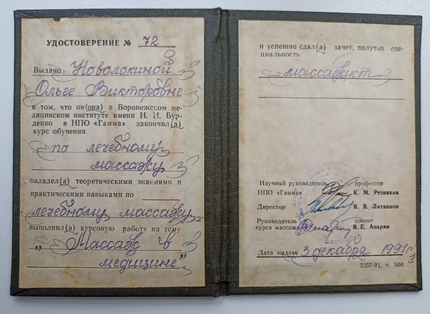 УДОСТОВЕРЕНИЕ № 72
Выдано Новолокиной
Ольге Викторовне
в том, что он(она) в Воронежском ме-
дицинском институте имени Н. Н. Бур-
денко в НПО «Гамма» закончил(а)
курс обучения
по лечебному
массажу
овладел(а) теоретическими знаниями и
практическими навыками по
лечебному массажу
выполнил(а) курсовую работу на тему
„Массаж в
медицине"
и успешно сдал(а) зачет, получив спе-
циальность
массажист
Научный руководитель профессор
НПО «Гамма» К. М. Резников
Директор В. В. Литвинов
Руководитель доцент
курса массажа В. Е. Апарин
Дата выдачи 3 декабря 1991г.
3357-91, т. 500